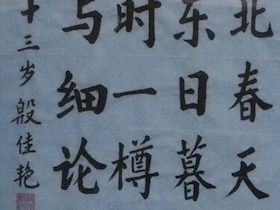 北春天
东日暮
时一樽
与细论
十三岁殷佳艳